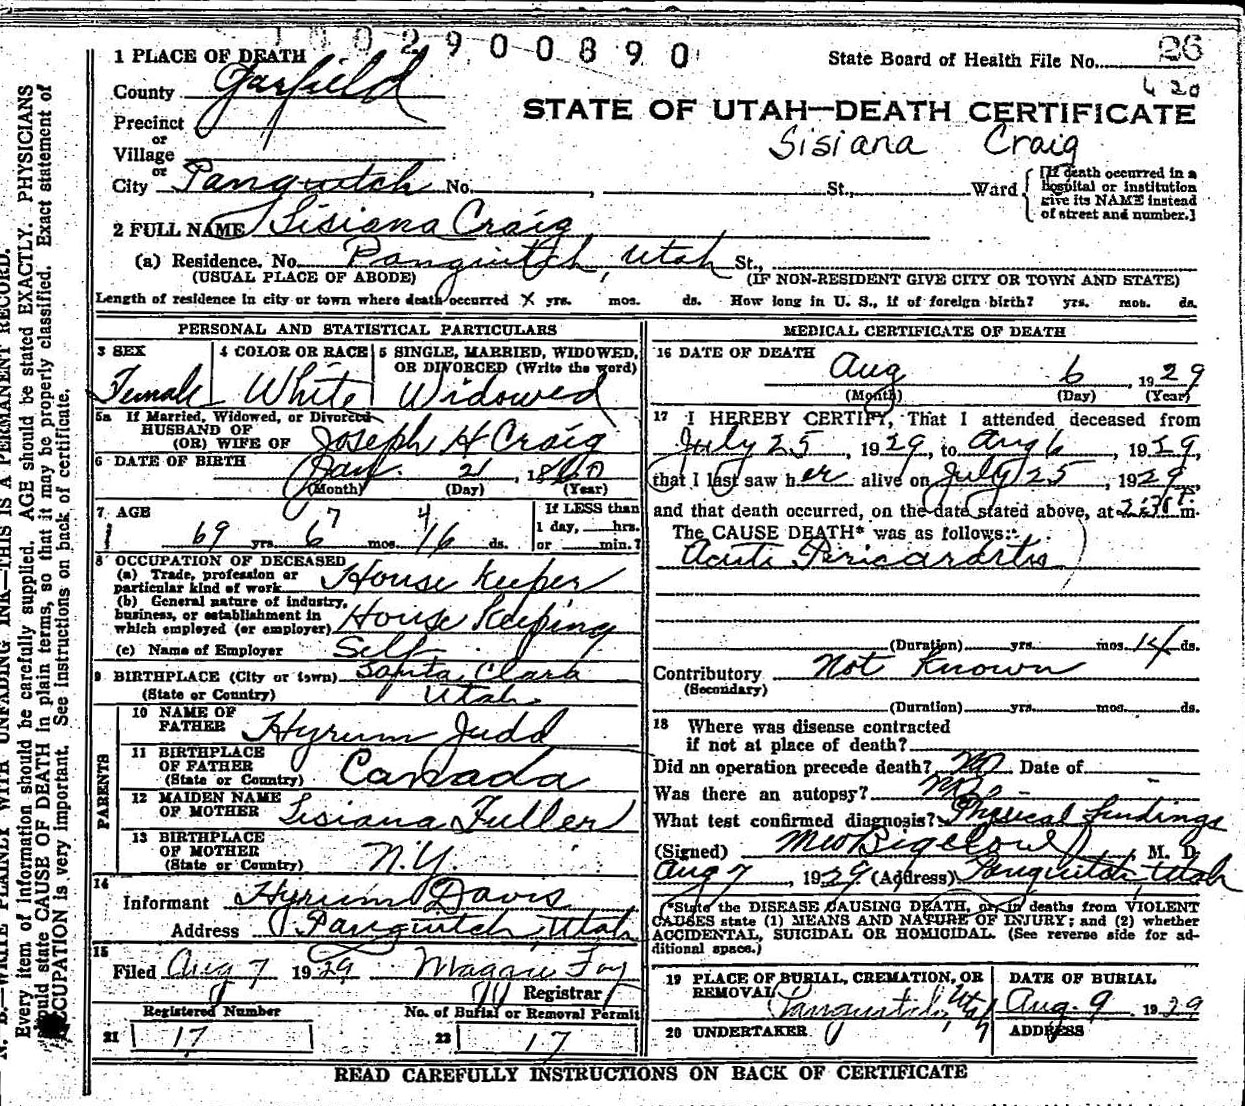 1 0 0 2 9 0 0 8 9 0
State Board of Health File No. 26
420
1 PLACE OF DEATH
County Garfield
STATE OF UTAH—DEATH CERTIFICATE
Precinct
or
Village
Sisiana Craig
or
City Panguitch No. , St., Ward
[If death occurred in a hospital or institution give its NAME instead of street and number.]
2 FULL NAME Lisiana Craig
(a) Residence. No. Panguitch, Utah St.,
(USUAL PLACE OF ABODE) (IF NON-RESIDENT GIVE CITY OR TOWN AND STATE)
Length of residence in city or town where death occurred X yrs. mos. ds. How long in U. S., if of foreign birth? yrs. mos. ds.
PERSONAL AND STATISTICAL PARTICULARS
3 SEX Female
4 COLOR OR RACE White
5 SINGLE, MARRIED, WIDOWED, OR DIVORCED (Write the word) Widowed
5a If Married, Widowed, or Divorced
HUSBAND OF
(OR) WIFE OF Joseph H Craig
6 DATE OF BIRTH Jan. 21, 1860
(Month) (Day) (Year)
7 AGE 7 4
69 yrs. 6 mos. 16 ds.
If LESS than
1 day, hrs.
or min.?
8 OCCUPATION OF DECEASED
(a) Trade, profession or
particular kind of work House Keeper
(b) General nature of industry,
business, or establishment in
which employed (or employer) House Keeping
(c) Name of Employer Self
9 BIRTHPLACE (City or town) Santa Clara
(State or Country) Utah
PARENTS
10 NAME OF
FATHER Hyrum Judd
11 BIRTHPLACE
OF FATHER
(State or Country) Canada
12 MAIDEN NAME
OF MOTHER Lisiana Fuller
13 BIRTHPLACE
OF MOTHER
(State or Country) N.Y.
14
Informant Hyrum Davis
Address Panguitch, Utah
15
Filed Aug 7 1929
Registrar
Registered Number No. of Burial or Removal Permit
21 17 22 17
MEDICAL CERTIFICATE OF DEATH
16 DATE OF DEATH
Aug 6, 1929
(Month) (Day) (Year)
17 I HEREBY CERTIFY, That I attended deceased from
July 25, 1929, to Aug 6, 1929,
that I last saw her alive on July 25, 1929,
and that death occurred, on the date stated above, at m.
The CAUSE DEATH* was as follows:
Acute Pericarditis
(Duration) yrs. mos. 14 ds.
Contributory Not Known
(Secondary)
(Duration) yrs. mos. ds.
18 Where was disease contracted
if not at place of death?
Did an operation precede death? No Date of
Was there an autopsy? No
What test confirmed diagnosis? Physical Findings
(Signed) Bigelow, M. D.
Aug 7, 1929 (Address) Panguitch Utah
*State the DISEASE CAUSING DEATH, or, in deaths from VIOLENT
CAUSES state (1) MEANS AND NATURE OF INJURY; and (2) whether
ACCIDENTAL, SUICIDAL OR HOMICIDAL. (See reverse side for ad-
ditional space.)
19 PLACE OF BURIAL, CREMATION, OR
REMOVAL Panguitch, Utah
DATE OF BURIAL
Aug. 9 1929
20 UNDERTAKER ADDRESS
READ CAREFULLY INSTRUCTIONS ON BACK OF CERTIFICATE
N. B.—WRITE PLAINLY WITH UNFADING INK—THIS IS A PERMANENT RECORD.
Every item of information should be carefully supplied. AGE should be stated EXACTLY. PHYSICIANS
should state CAUSE OF DEATH in plain terms, so that it may be properly classified. Exact statement of
OCCUPATION is very important. See instructions on back of certificate.